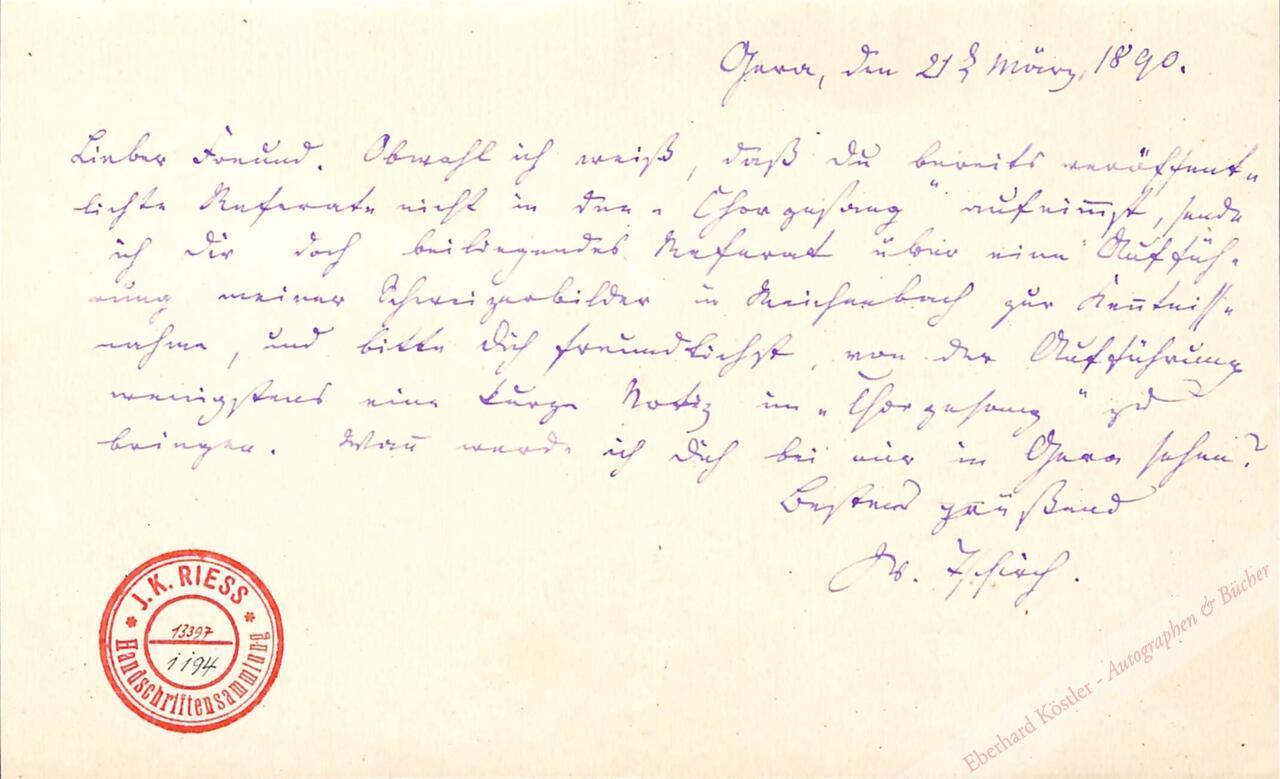 Gera, den 21 t März, 1890.
Lieber Freund. Obwohl ich weiß, daß Du bereits veröffent-
lichte Referate nicht in den „Chorgesang" aufnim̅st, sende
ich Dir doch beiliegendes Referat über eine Auffüh-
rung meiner Schweizerbilder in Reichenbach zur Ken̅tniß-
nahme, und bitte Dich freundlichst, von der Aufführung
wenigstens eine kurze Notiz im „Chorgesang" zu
bringen. Wan̅ werde ich Dich bei mir in Gera sehen?
Bestens grüßend
W. Tschirch.
J. K. RIESS
13397
i 194
Handschriftensammlung
Eberhard Köstler - Autographen & Bücher